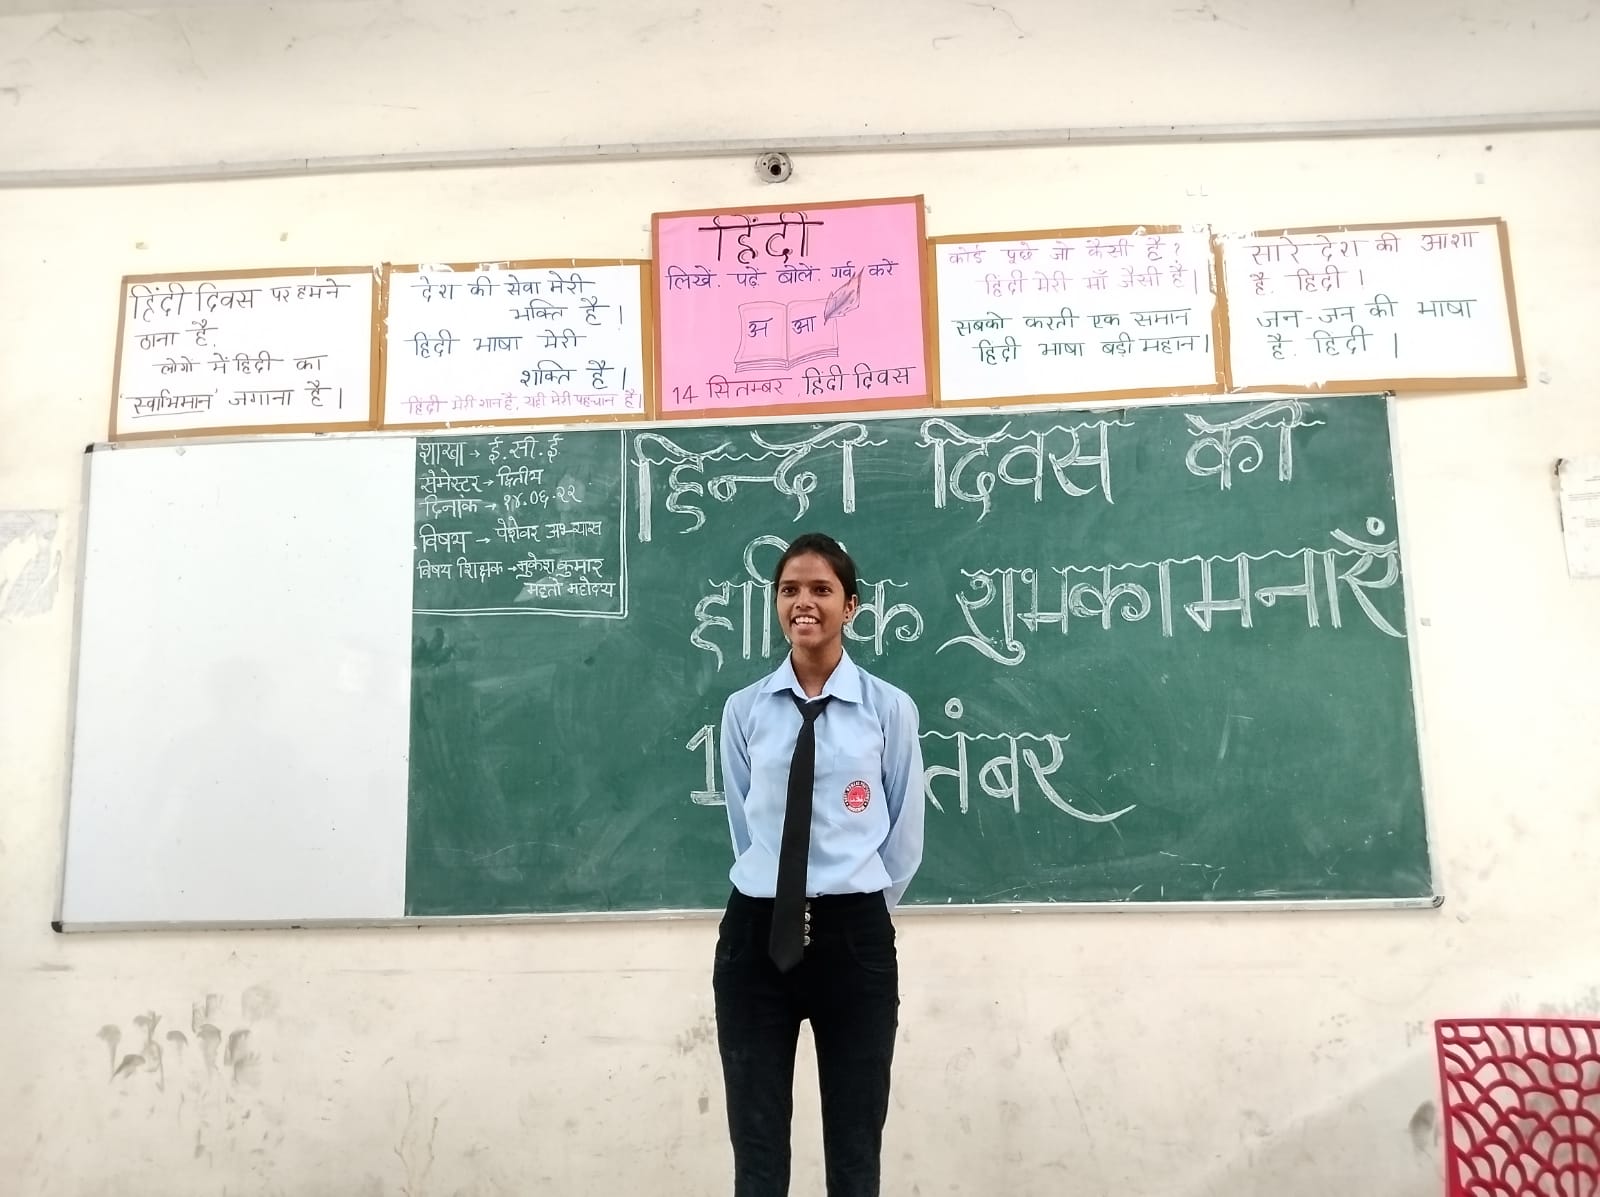 हिंदी दिवस पर हमने
ठाना है,
लोगो में हिंदी का
'स्वाभिमान' जगाना है।
देश की सेवा मेरी
भक्ति है।
हिंदी भाषा मेरी
शक्ति है।
हिंदी मेरी शान है, यही मेरी पहचान है।
हिंदी
लिखें. पढ़ें. बोलें. गर्व करें
अ आ
14 सितम्बर, हिंदी दिवस
कोई पूछे जो कैसी है?
हिंदी मेरी माँ जैसी है।
सबको करती एक समान
हिंदी भाषा बड़ी महान।
सारे देश की आशा
है. हिंदी।
जन-जन की भाषा
है. हिंदी।
शाखा → ई.सी.ई
सेमेस्टर → द्वितीय
दिनांक →
विषय → पेशेवर अभ्यास
विषय शिक्षक → मुकेश कुमार
महतो महोदय
हिन्दी दिवस की
शुभकामनाएँ